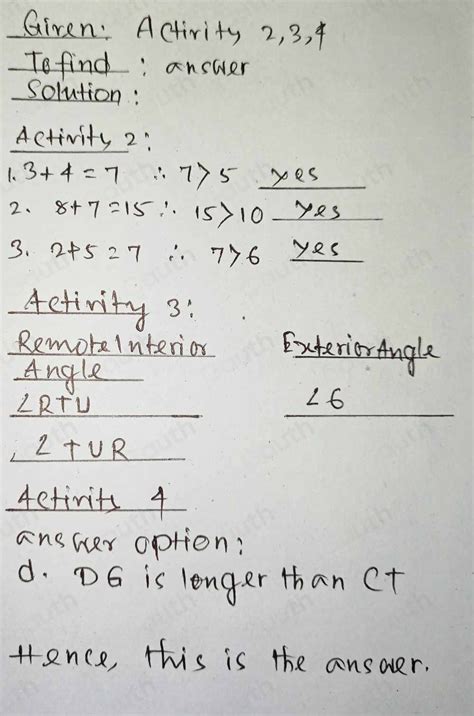 Given: Activity 2,3,4
To find : answer
Solution :
Activity 2:
1. 3+4=7 ∴ 7>5 yes
2. 8+7=15 ∴ 15>10 yes
3. 2+5=7 ∴ 7>6 yes
Activity 3:
Remote Interior Exterior Angle
Angle
∠RTU ∠6
∠TUR
Activity 4
answer option:
d. DG is longer than CT
Hence, this is the answer.